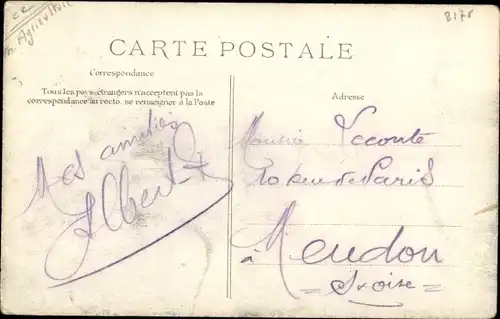 Agriculture
2178
CARTE POSTALE
Correspondance
Tous les pays étrangers n'acceptent pas la
correspondance au recto. se renseigner à la Poste
Mes amitiés
Albert
Adresse
Lecomte
10 Rue de Paris
à Meudon
= S et Oise =